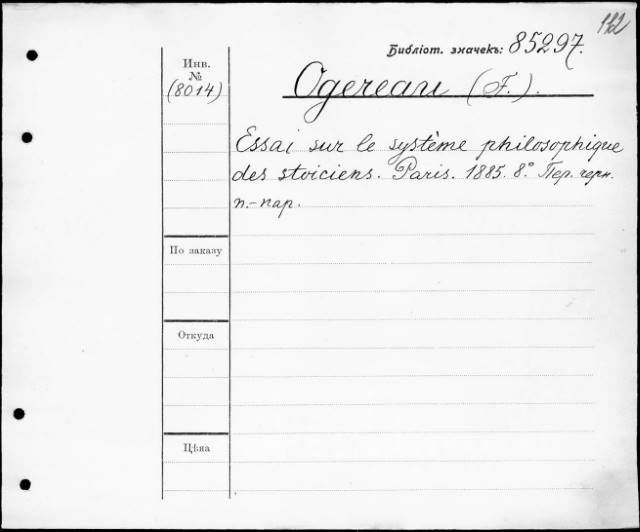 112
Библіот. значекъ: 85297.
Инв.
№
(8014)
Ogereau (F.).
Essai sur le système philosophique
des stoiciens. Paris. 1885. 8° Пер. черн.
п.-пар.
По заказу
Откуда
Цѣна